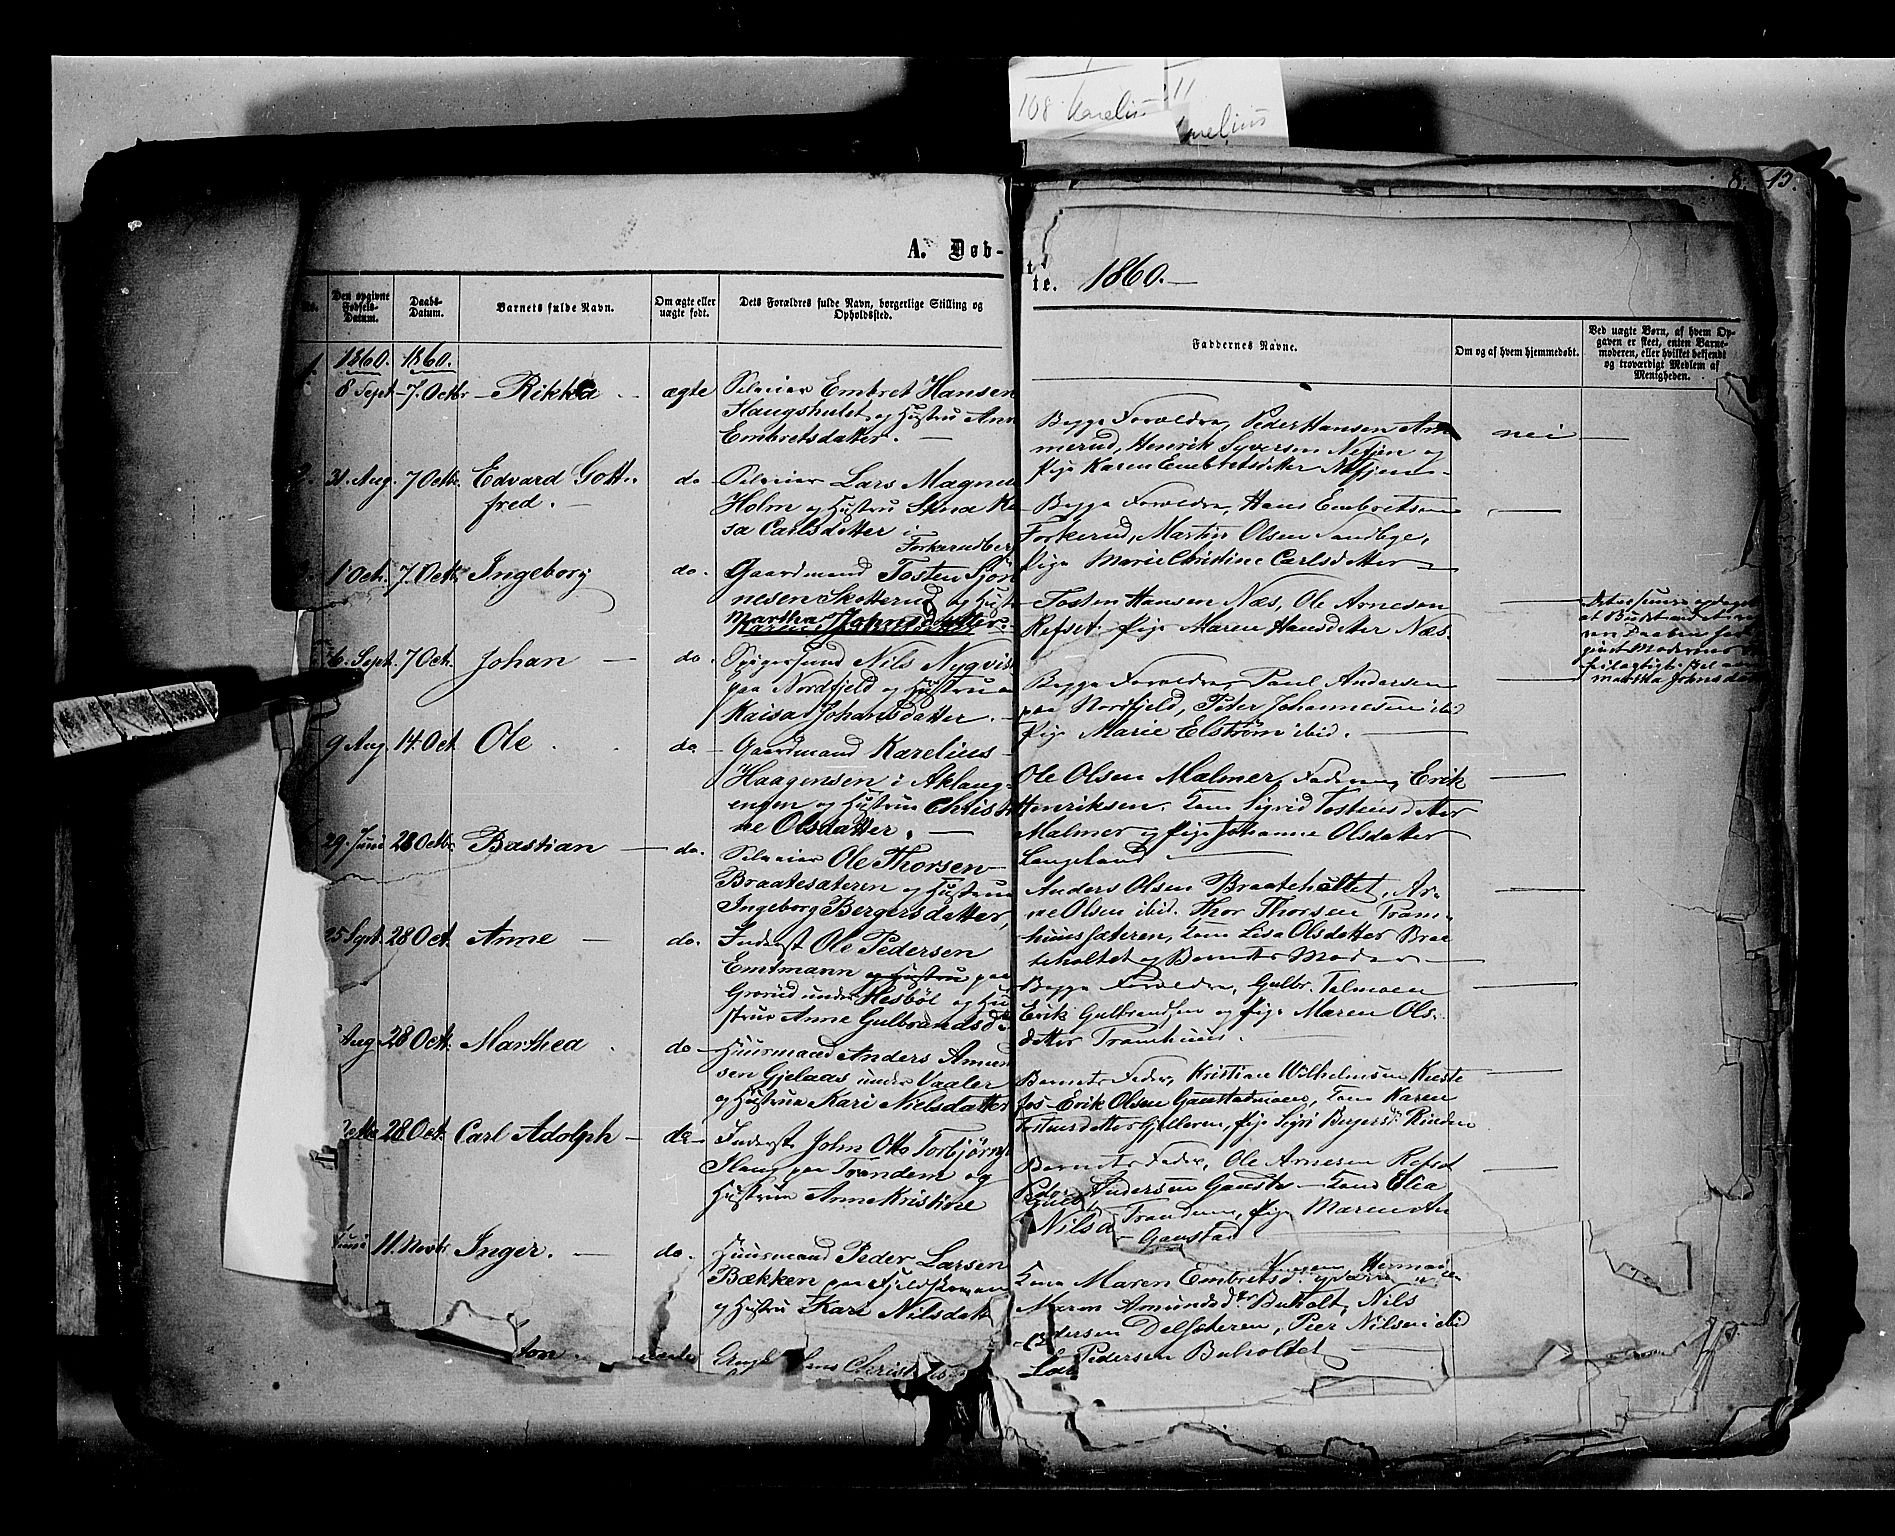 108 Karelius 11
Karelius
8. 15.
A. Døb-
te. 1860. —
No.
Den opgivne Fødsels-Datum.
Daabs-Datum.
Barnets fulde Navn.
Om ægte eller uægte født.
Dets Forældres fulde Navn, borgerlige Stilling og Opholdssted.
Faddernes Navne.
Om og af hvem hjemmedøbt.
Ved uægte Børn, af hvem Opgaven er skeet, enten Barnemoderen, eller hvilket bekjendt og troværdigt Medlem af Menigheden.
1860. 1860.
1.
8 Sept. 7. Octbr. Rikka ægte
Selveier Embret Hansen
Haugshulet og Hustru Anne
Embretsdatter. —
Begge Forældre, Peder Hansen
merud, Henrik Syversen Nøfjen og
Pige Karen Embretsdatter Nøfjen
nei —
2. 31. Aug. 7 Octbr. Edvard Gott-
fred. — do
Selveier Lars Magnus
Holm og Hustru Stina Ka
sa Carlsdatter i
Forkerudberg
Begge Forældre, Hans Embretsen
Forkerud, Martin Olsen Sandbye,
Pige Marie Christine Carlsdatter
3. 1 Oct. 7. Octbr. Ingeborg do.
Gaardmand Tosten Gjøn
nesen Skotterud og Hustru
Martha Johnsdatter
Tosten Hansen Næs, Ole Arnesen
Refset. Pige Maren Hansdatter Næs.
martha Johnsdatter
6. Sept. 7 Oct. Johan — do.
Spigersmed Nils Nyqvist
paa Nordfjeld og Hustrue
Kaisa Johansdatter.
Begge Forældre, Paul Andersen
paa Nordfjeld, Peter Johannesen ibid
Pige Marie Elstrøm ibid.
9 Aug. 14. Oct. Ole do
Gaardmand Karelius
Haagensen i Aklang-
engen og Hustrue Christi
ne Olsdatter. —
Ole Olsen Malmer, Faderen, Erik
Henriksen. Kone Sigrid Tostensdatter
Malmer og Pige Johanne Olsdatter
Langeland
29. Juni 28 Octbr. Bastian — do.
Selveier Ole Thorsen
Braatesæteren og Hustrue
Ingeborg Bergersdatter,
Anders Olsen Braateholtet, Ar-
ne Olsen ibid. Thor Thorsen Tram-
huussæteren, Kone Lisa Olsdatter Braa
teholtet og Barnets Moder
25 Sept. 28 Oct. Anne — do.
Inderst Ole Pedersen
Emtmann og Hustru paa
Grorud under Hesbøl og Hu
strue Anne Gulbrandsd.
Begge Forældre, Gulbr. Talmoen
Erik Gulbrandsen og Pige Maren Ols-
datter Tramhuus.
Aug 28 Octb. Marthea do
Huusmand Anders Amun
sen Gjelaas under Vaaler
og Hustrue Kari Nielsdatter
Barnets Fader, Kristian Wilhelmsen Kaste
fos Erik Olsen Gaustadmoen, Kone Karen
Tostensdatter Gjelleren, Pige Sigri Bergersd. Rinden
28. Oct. Carl Adolph — do
Inderst John Otto Torbjørns
Haug paa Trandem og
Hustrue Anne Kristine
Barnets Fader, Ole Arnesen Refset
Peder Andersen Gausta — Kone Elia
Nilsd. Trandem, Pige Maren An
— Gaustad
11. Novbr. Inger. — do.
Huusmand Peder Larsen
Bækken paa
og Hustru Kari Nilsdatt
Kone Maren Embretsd.
Maren Amundsdtr Buholt, Nils
Pedersen Delsæteren, Peer Nilsen ibid
Lars Pedersen Buholtet
ton uægte
Christ